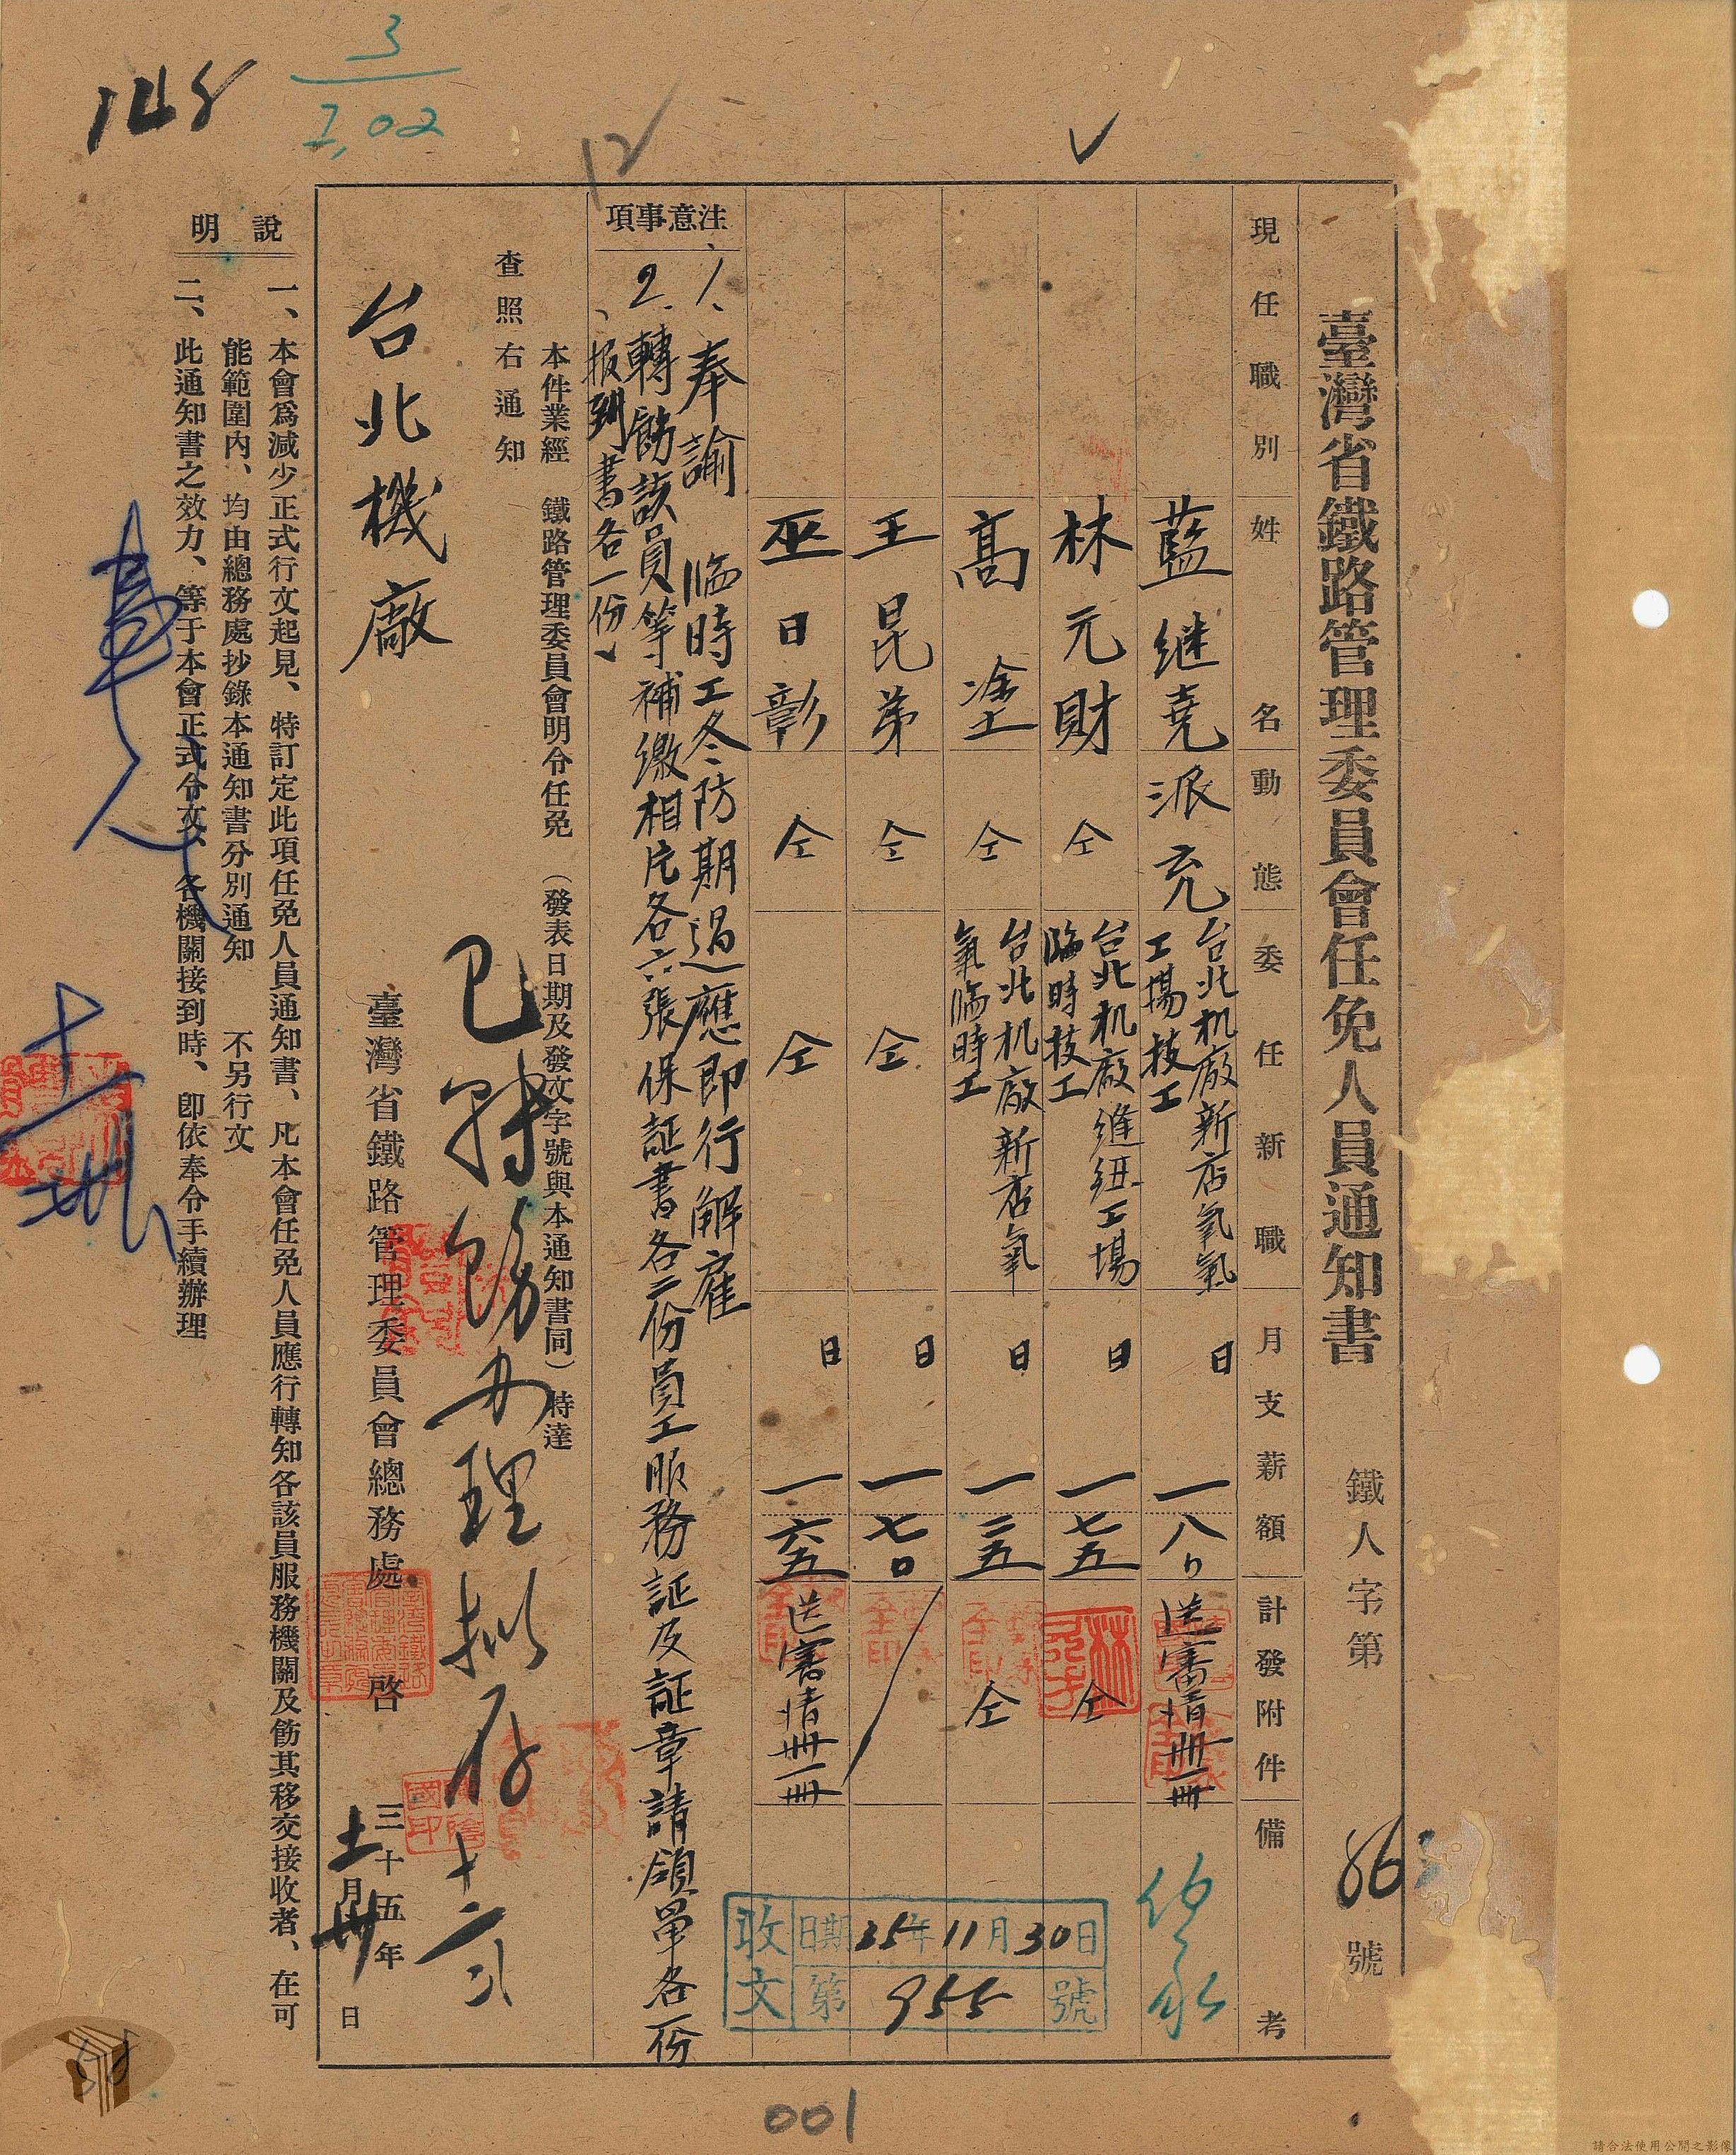 臺灣省鐵路管理委員會任免人員通知書
鐵人字第 86 號
現任職別
姓名
動態
委任新職
月支薪額
計發附件
備考
藍継堯
派充
台北机廠新店氧氣
工場技工
日
一八〇
送審情冊一冊
林元財
仝
台北机廠缝纽工場
臨時技工
日
一七五
仝
高塗
仝
台北机廠新店氧
氣臨時工
日
一三五
仝
王昆弟
仝
仝
日
一七〇
巫日彰
仝
仝
日
一六五
送審情冊一冊
收文
日期 35年11月30日
第 955 號
注意事項
1、奉諭 臨時工冬防期過應即行解雇
2、轉飭該員等補繳相片各六張保証書各二份員工服務証及証章請領單各一份
、报到書各一份、
本件業經 鐵路管理委員會明令任免 （發表日期及發文字號與本通知書同）特達
查照右通知
已轉飭办理拟存
台北機廠
臺灣省鐵路管理委員會總務處 啓
三十五年
十一月卅日
說明
一、本會爲減少正式行文起見、特訂定此項任免人員通知書、凡本會任免人員應行轉知各該員服務機關及飭其移交接收者、在可
能範圍內、均由總務處抄錄本通知書分別通知 不另行文
二、此通知書之效力、等于本會正式令文、各機關接到時、卽依奉令手續辦理
148
3
1,02
12
001
請合法使用公開之影像